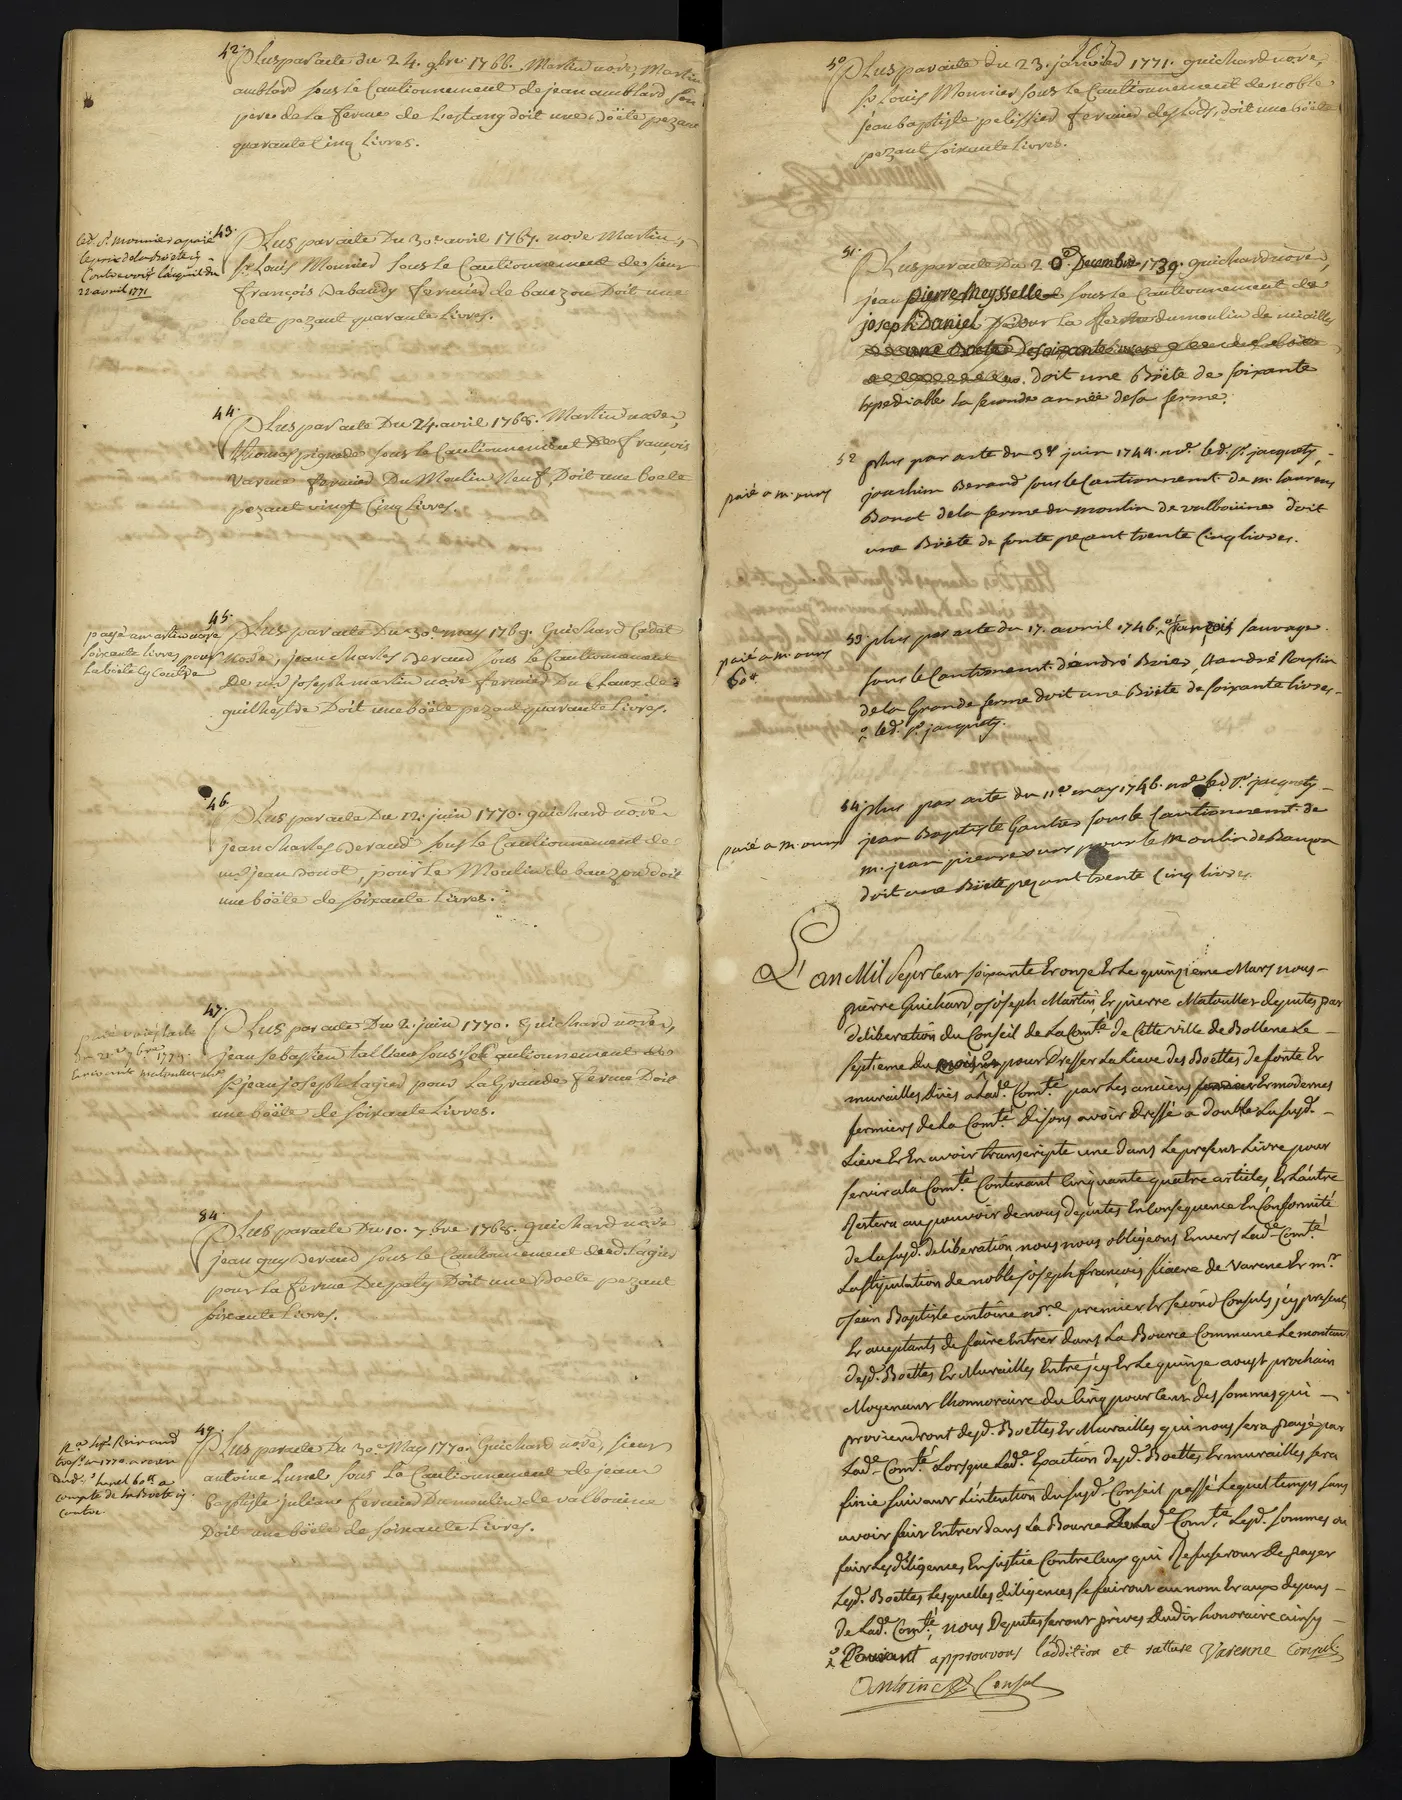 42. Plus par acte du 24. 9bre 1766. Martin nore, Martin
amblard sous le Cautionnement de jean amblard son
pere de la ferme de Lestang doit une boëte pezant
quarante Cinq Livres.
led. sr. monnier a payé
le prix de la Boëte cy
Contre
22 avril 1771
43. Plus par acte Du 30e avril 1767. nore Martin,
sr. Louis Monnier sous le Cautionnement de sieur
françois Dabaudy fermier de bauzon Doit une
boete pezant quarante Livres.
44. Plus par acte Du 24. avril 1768. Martin nore,
Thomas sous le Cautionnement De françois
fermier Du Moulin Neuf, Doit une boete
pezant vingt Cinq Livres.
payé a martin nore
soixante livres pour
la boëte cy Contre
45. Plus par acte Du 30e may 1769. Guichard Cadet
nore, jean charles Beraud sous le Cautionnement
De mr joseph martin nore fermier Du
Doit une boëte pezant quarante Livres.
46. Plus par acte Du 12. juin 1770. guichard nore
jean charles Beraud sous le Cautionnement de
mr jean donot, pour Le Moulin de bauzon doit
une boëte de soixante Livres.
47. Plus par acte Du 2. juin 1770. Guichard nore,
jean sebastien sous le Cautionnement de
sr. jean joseph Lagier pour La Grande ferme Doit
une boëte de soixante Livres.
84. Plus par acte Du 10. 7bre 1768. guichard nore
jean guy Beraud sous le Cautionnement dud. Lagier
pour La ferme Du paty Doit une Boete pezant
soixante Livres.
compte de la Boëte cy
Contre
49. Plus par acte Du 30e May 1770. Guichard nore, sieur
antoine Lunel sous Le Cautionnement de jean
baptiste julian fermier Du moulin de valbouine
Doit une boëte de soixante Livres.
107
50 Plus par acte du 23. janvier 1771. guichard nore,
sr. Louis Monnier sous le Cautionnement de noble
jean baptiste pelissier fermier des Lods, doit une boëte
pezant soixante Livres.
51. Plus par acte Du 20e. Decembre 1739. guichard nore,
jean pierre Meyssellé sous le Cautionnement de
joseph Daniel pour La ferme du moulin de
doit une Böete de soixante
La seconde année de sa ferme.
52 plus par acte du 3e juin 1744. nre. led. sr. jacquety,
paié a m. ours
joachim Beraud sous le Cautionnemt. de m. laurens
Bonot de la ferme du moulin de valbouine doit
une Böete de fonte pezant trente Cinq livres.
53. plus par acte du 17. avril 1746. françois sauvage
paié a m. ours
60#
sous le Cautionnemt. d'andré Brier, & andré
de la Grande ferme doit une Böete de soixante livres.
led. sr. jacquety.
54. plus par acte du 11e may 1746. nre led sr. jacquety
paié a m. ours
jean Baptiste Gautier sous le Cautionnemt. de
m. jean pierre ours pour le moulin de Bauzon
doit une Böete pezant trente Cinq livres.
L'an Mil sept cent soixante et onze et le quinzieme Mars nous
pierre Guichard, joseph Martin et pierre Matoullet deputes par
deliberation du Conseil de La Comté de Cette ville de Bollene Le
septieme du pour Dresser La Lieve des Boettes de fonte et
murailles düës a Lade. Comté par Les anciens et modernes
fermiers de La Comté Disons avoir Dressé a double La susd.
Lieve et En avoir transcripte une dans Le present Livre pour
servir a la Comté Contenant Cinquante quatre articles et L'autre
Restera au pouvoir de nous deputes En Consequence En Conformité
de La susd. deliberation nous nous obligeons Envers Lade. Comté
La stipulation de noble joseph françois fiacre de Varene et mr.
jean Baptiste antoine nore premier et second Consuls jcy presents
et acceptants de faire Entrer dans La Bource Commune Le montant
desd. Boettes et Murailles Entre jcy et Le quinze aoust prochain
Moyenant L'honnoraire du Cinq pour Cent des sommes qui
proviendront desd. Boettes et Murailles qui nous sera payé par
Lade. Comté Lorsque Lade. Exaction desd. Boettes et murailles sera
finie suivant L'intention du susd. Conseil passé Lequel temps sans
avoir fait Entrer dans La Bource de Lade. Comté Lesd. sommes ou
fait Les diligences En justice Contre Ceux qui Refuseront De payer
Lesd. Boettes Lesquelles diligences se fairont au nom et aux depens
de Lade. Comté, nous Deputes seront privés dudit honoraire ainsy
Courant approuvons l'addition et rature Varenne Consul
Antoine Consul